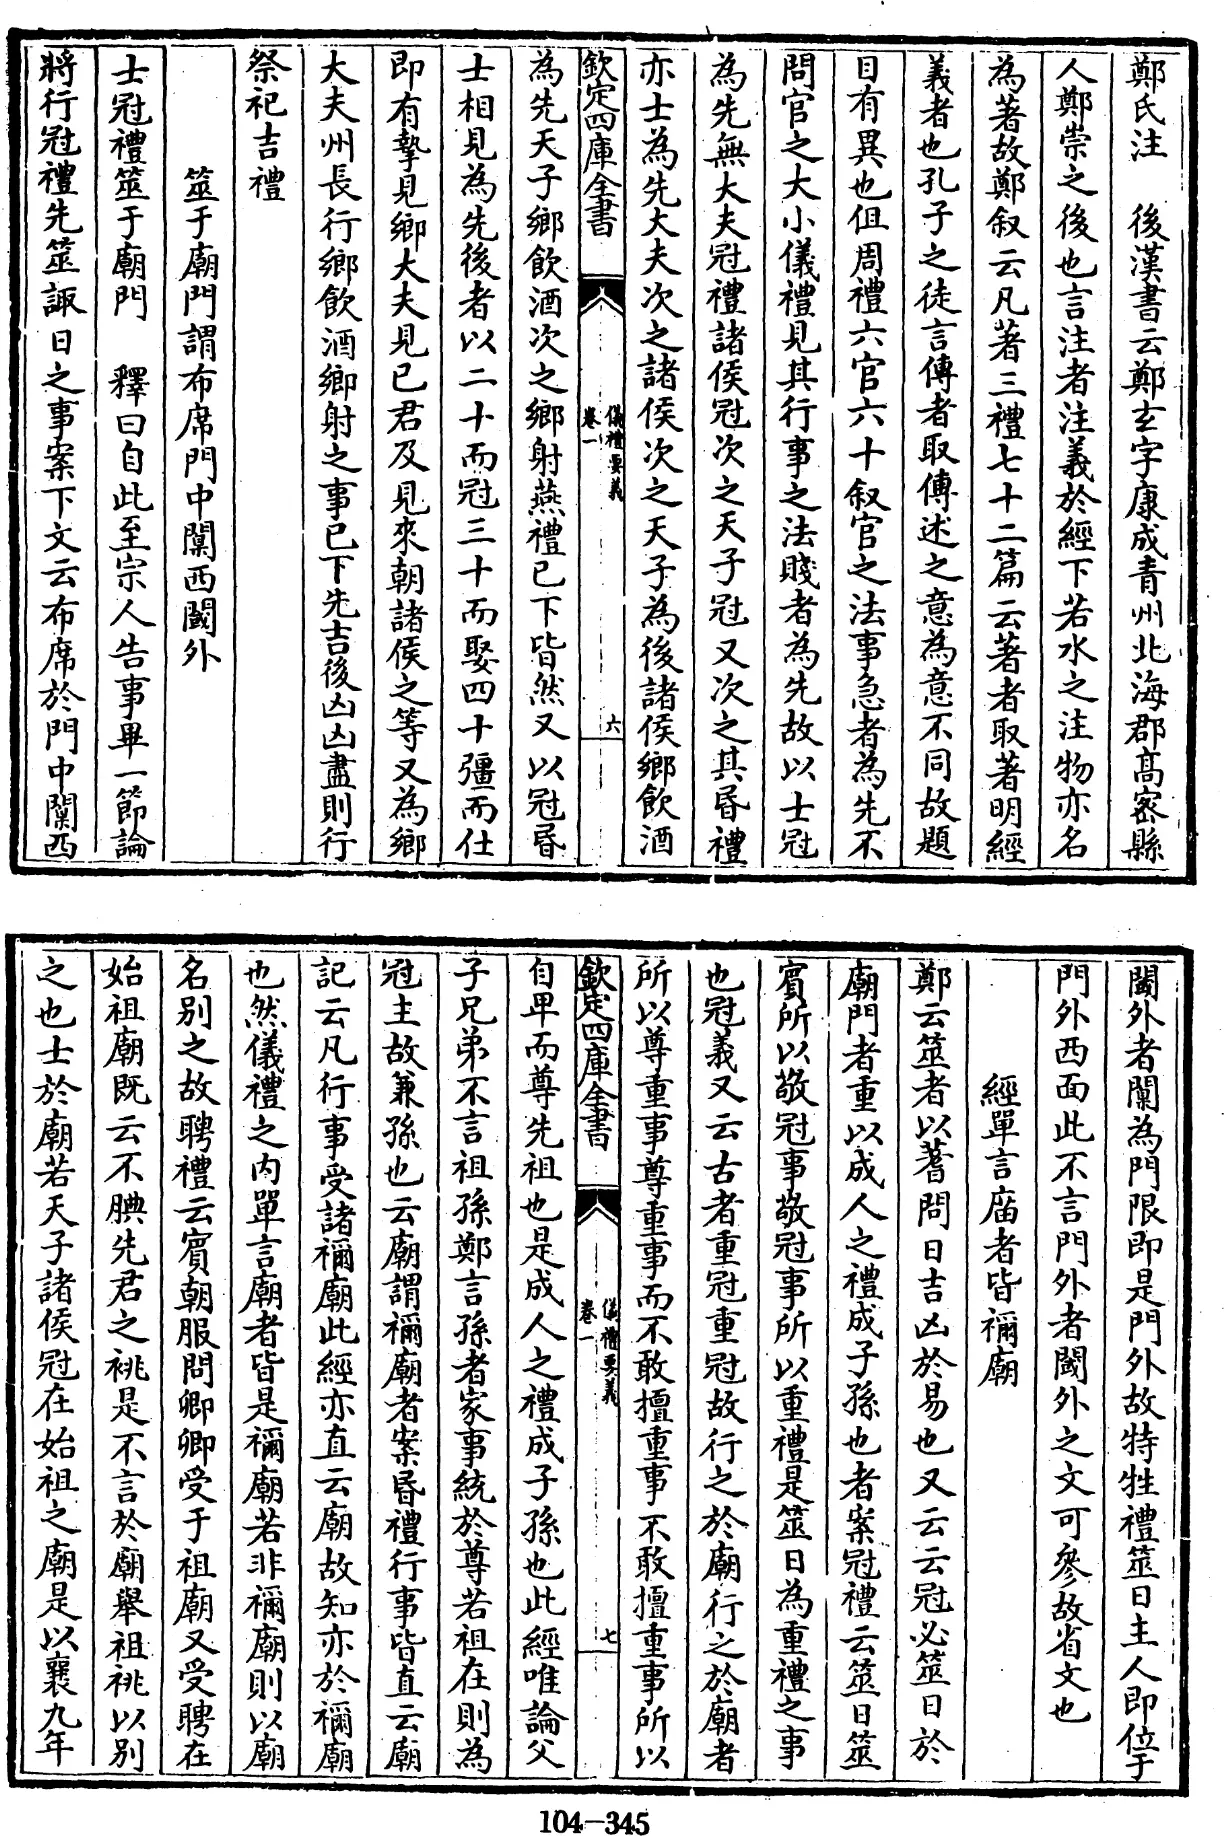 鄭氏注　後漢書云鄭玄字康成青州北海郡高密縣
人鄭崇之後也言注者注義於經下若水之注物亦名
為著故鄭叙云凡著三禮七十二篇云著者取著明經
義者也孔子之徒言傳者取傳述之意為意不同故題
目有異也但周禮六官六十叙官之法事急者為先不
問官之大小儀禮見其行事之法賤者為先故以士冠
為先無大夫冠禮諸侯冠次之天子冠又次之其昏禮
亦士為先大夫次之諸侯次之天子為後諸侯鄉飲酒
欽定四庫全書　儀禮要義　卷一　六
為先天子鄉飲酒次之鄉射燕禮已下皆然又以冠昏
士相見為先後者以二十而冠三十而娶四十彊而仕
即有摯見鄉大夫見已君及見來朝諸侯之等又為鄉
大夫州長行鄉飲酒鄉射之事已下先吉後凶凶盡則行
祭祀吉禮
筮于廟門謂布席門中闑西閾外
士冠禮筮于廟門　釋曰自此至宗人告事畢一節論
將行冠禮先筮諏日之事案下文云布席於門中闑西
閾外者闑為門限即是門外故特牲禮筮日主人即位于
門外西面此不言門外者閾外之文可參故省文也
經單言庿者皆禰廟
鄭云筮者以蓍問日吉凶於易也又云云冠必筮日於
廟門者重以成人之禮成子孫也者案冠禮云筮日筮
賓所以敬冠事敬冠事所以重禮是筮日為重禮之事
也冠義又云古者重冠重冠故行之於廟行之於廟者
所以尊重事尊重事而不敢擅重事不敢擅重事所以
欽定四庫全書　儀禮要義　卷一　七
自卑而尊先祖也是成人之禮成子孫也此經唯論父
子兄弟不言祖孫鄭言孫者家事統於尊若祖在則為
冠主故兼孫也云廟謂禰廟者案昏禮行事皆直云廟
記云凡行事受諸禰廟此經亦直云廟故知亦於禰廟
也然儀禮之内單言廟者皆是禰廟若非禰廟則以廟
名別之故聘禮云賓朝服問卿卿受于祖廟又受聘在
始祖廟既云不腆先君之祧是不言於廟舉祖祧以別
之也士於廟若天子諸侯冠在始祖之廟是以襄九年
104-345